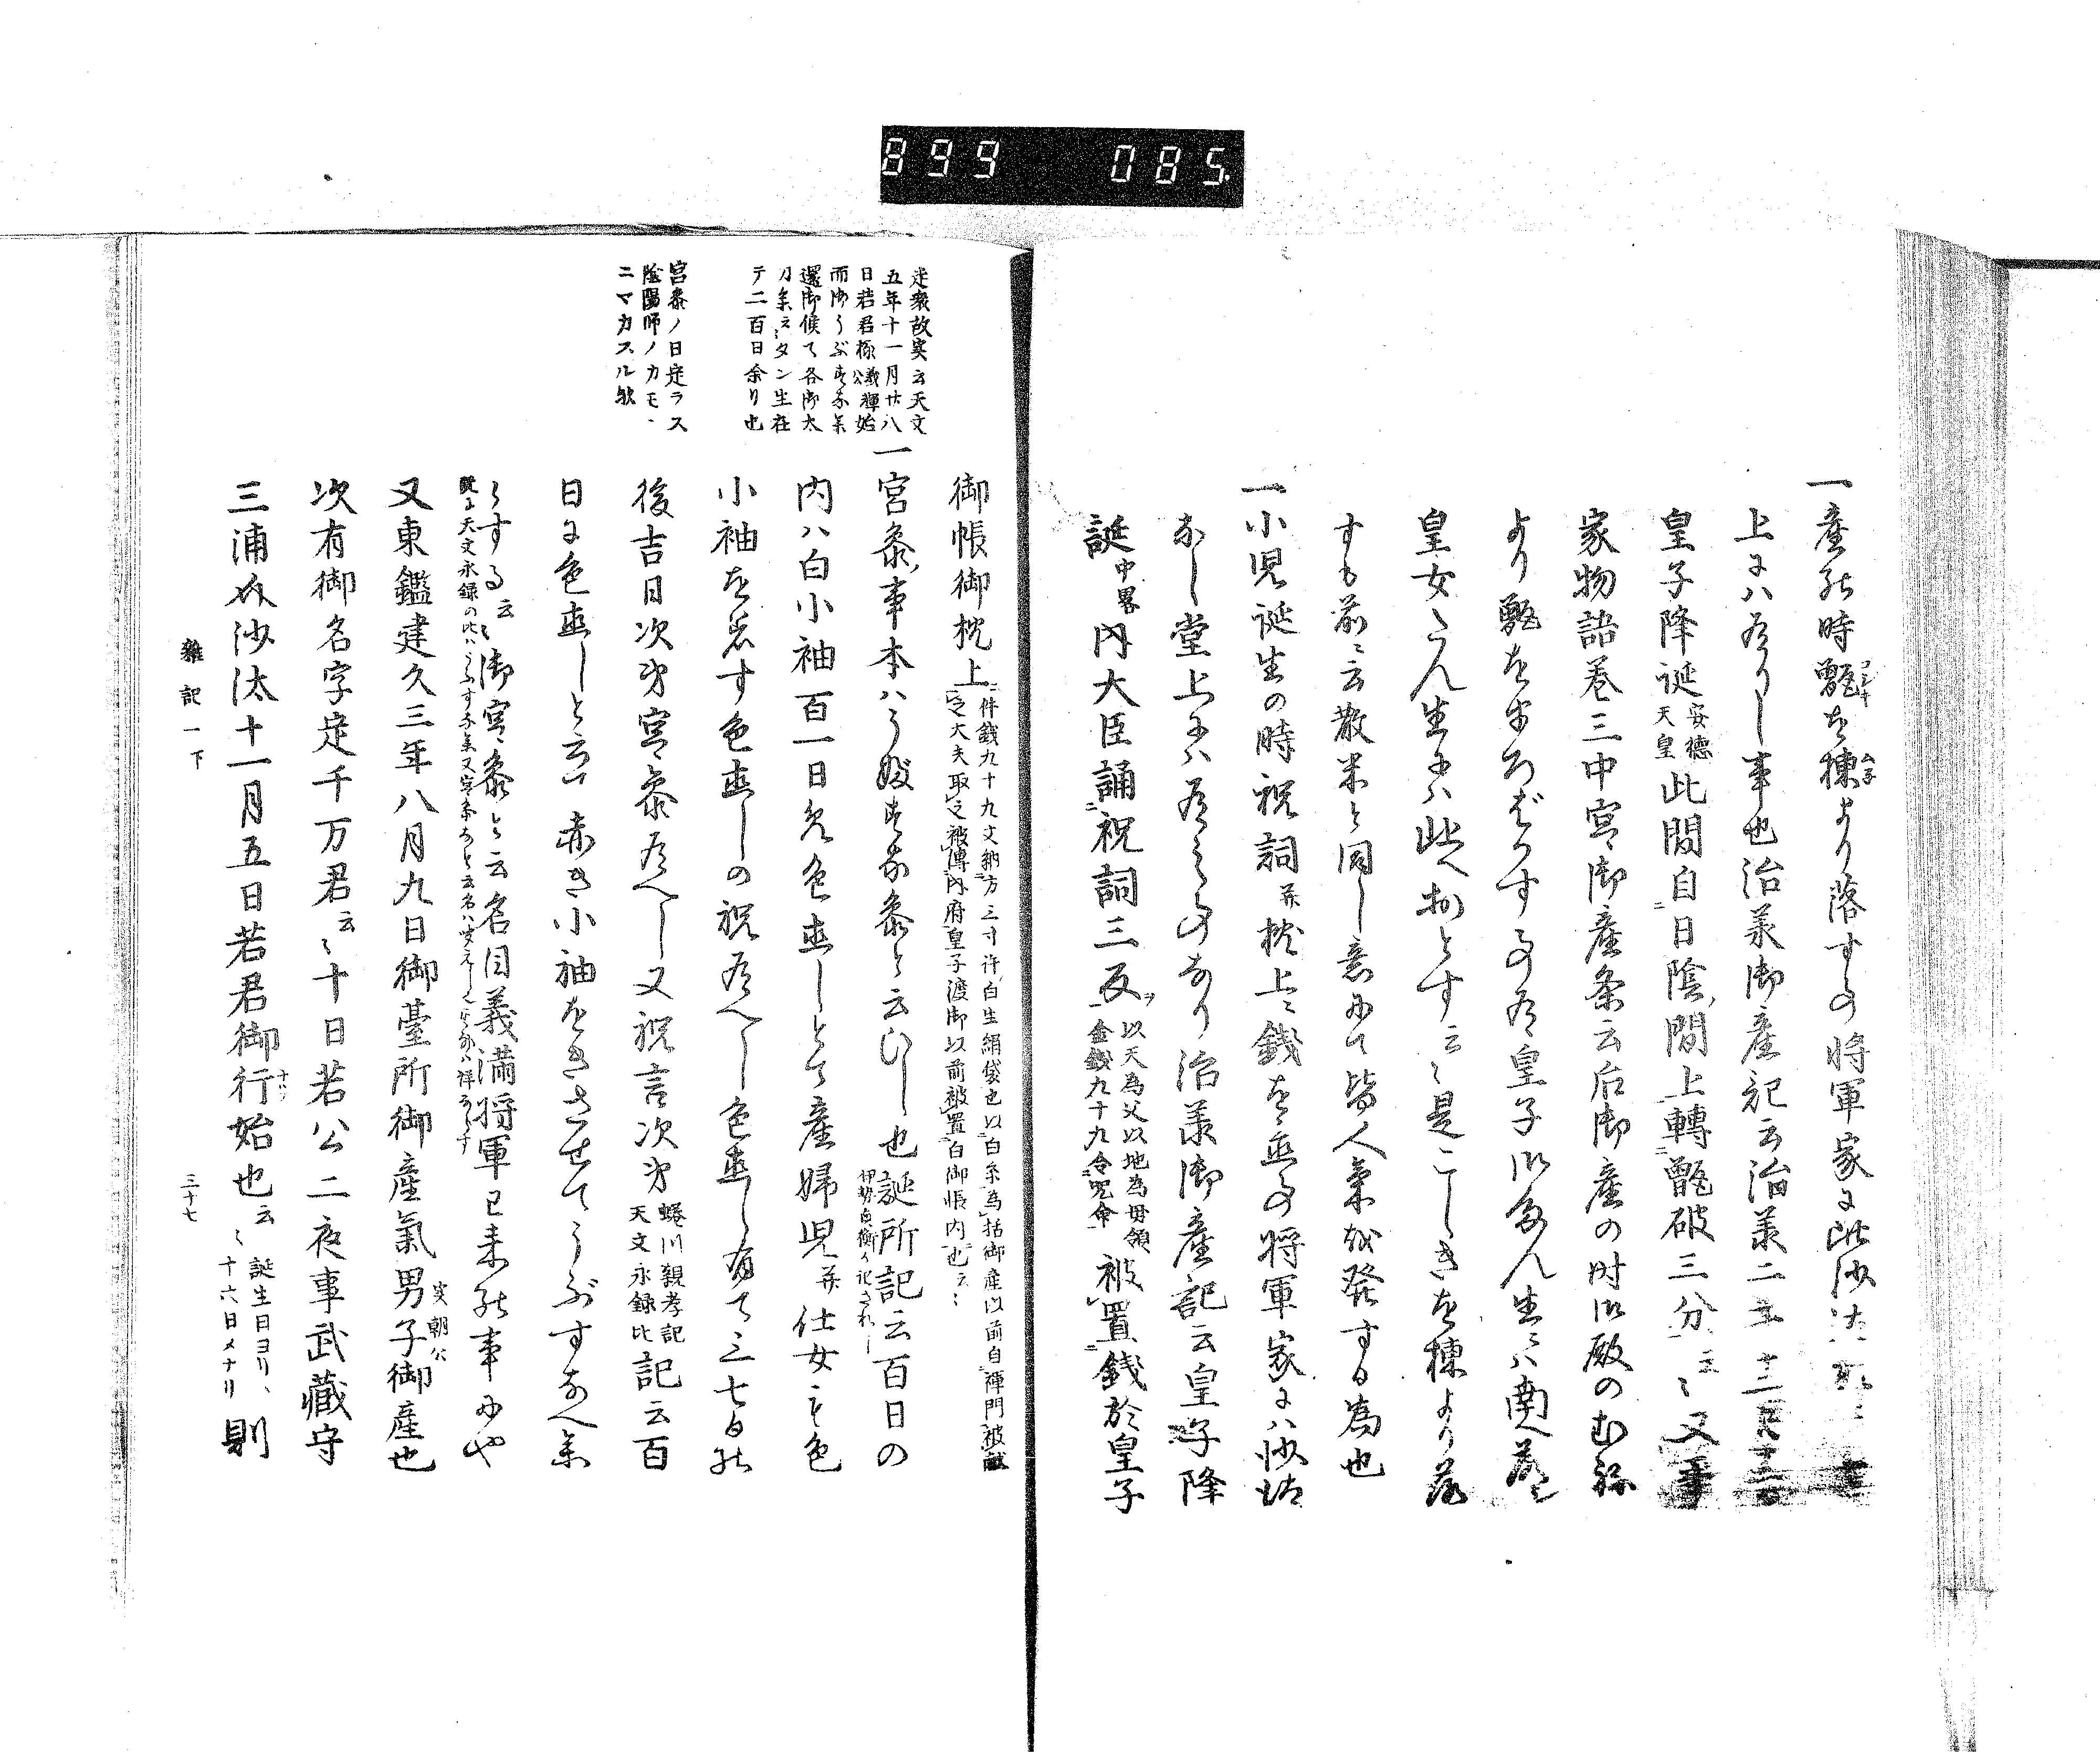 899 085
一産の時甑を棟より落す事将軍家に此沙汰
上にハ有りし事也治承御産記云治承二
皇子降誕安徳天皇此間自日陰間上轉甑破三分云々又
家物語巻三中宮御産条云后御産の時御殿のむね
より甑をまろばかす事有皇子御たん生にハ南へ落し
皇女たん生にハ北へ おとす云々是こしきを棟より落
すも前ニ云散米と同し意にて皆人氣を発する為也
一小児誕生の時祝詞并枕上ニ銭を置事将軍家にハ沙汰
なし堂上にハ有之事なり治承御産記云皇子降
誕中畧内大臣誦祝詞三反以天為父以地為母領金銭九十九令児命被置銭於皇子
御帳御枕上件銭九十九文納方三寸許白生絹袋也以白糸為括御産以前自禅門被献之大夫取之被傳内府皇子渡御以前被置白御帳内也云々
一宮参事本ハうぶすな参と云ひし也誕所記云百日の
内ハ白小袖百一日め色直しとて産婦児并仕女も色
小袖を着す色直しの祝有へし色直し有て三七日の
後吉日次第宮参有へし又祝言次第蜷川親孝記天文永録比記云百
日に色直しと云ハ赤き小袖をきさせてうぶすなへ参
らする云々御宮参と云名目義満将軍已来の事にや
又東鑑建久三年八月九日御臺所御産氣男子実朝公御産也
次有御名字定千万君云々十日若公二夜事武藏守
三浦介沙汰十一月五日若君御行始也云々誕生日ヨリ十六日メナリ則
走衆故実云天文
五年十一月廿八
日若君様義輝公始
而御うぶすな参
還御候て各御太
刀参ラスタン生在
テ二百日余り也
宮参ノ日定ラス
陰陽師ノカモヘ
ニマカスル欤
雑記一下
三十七